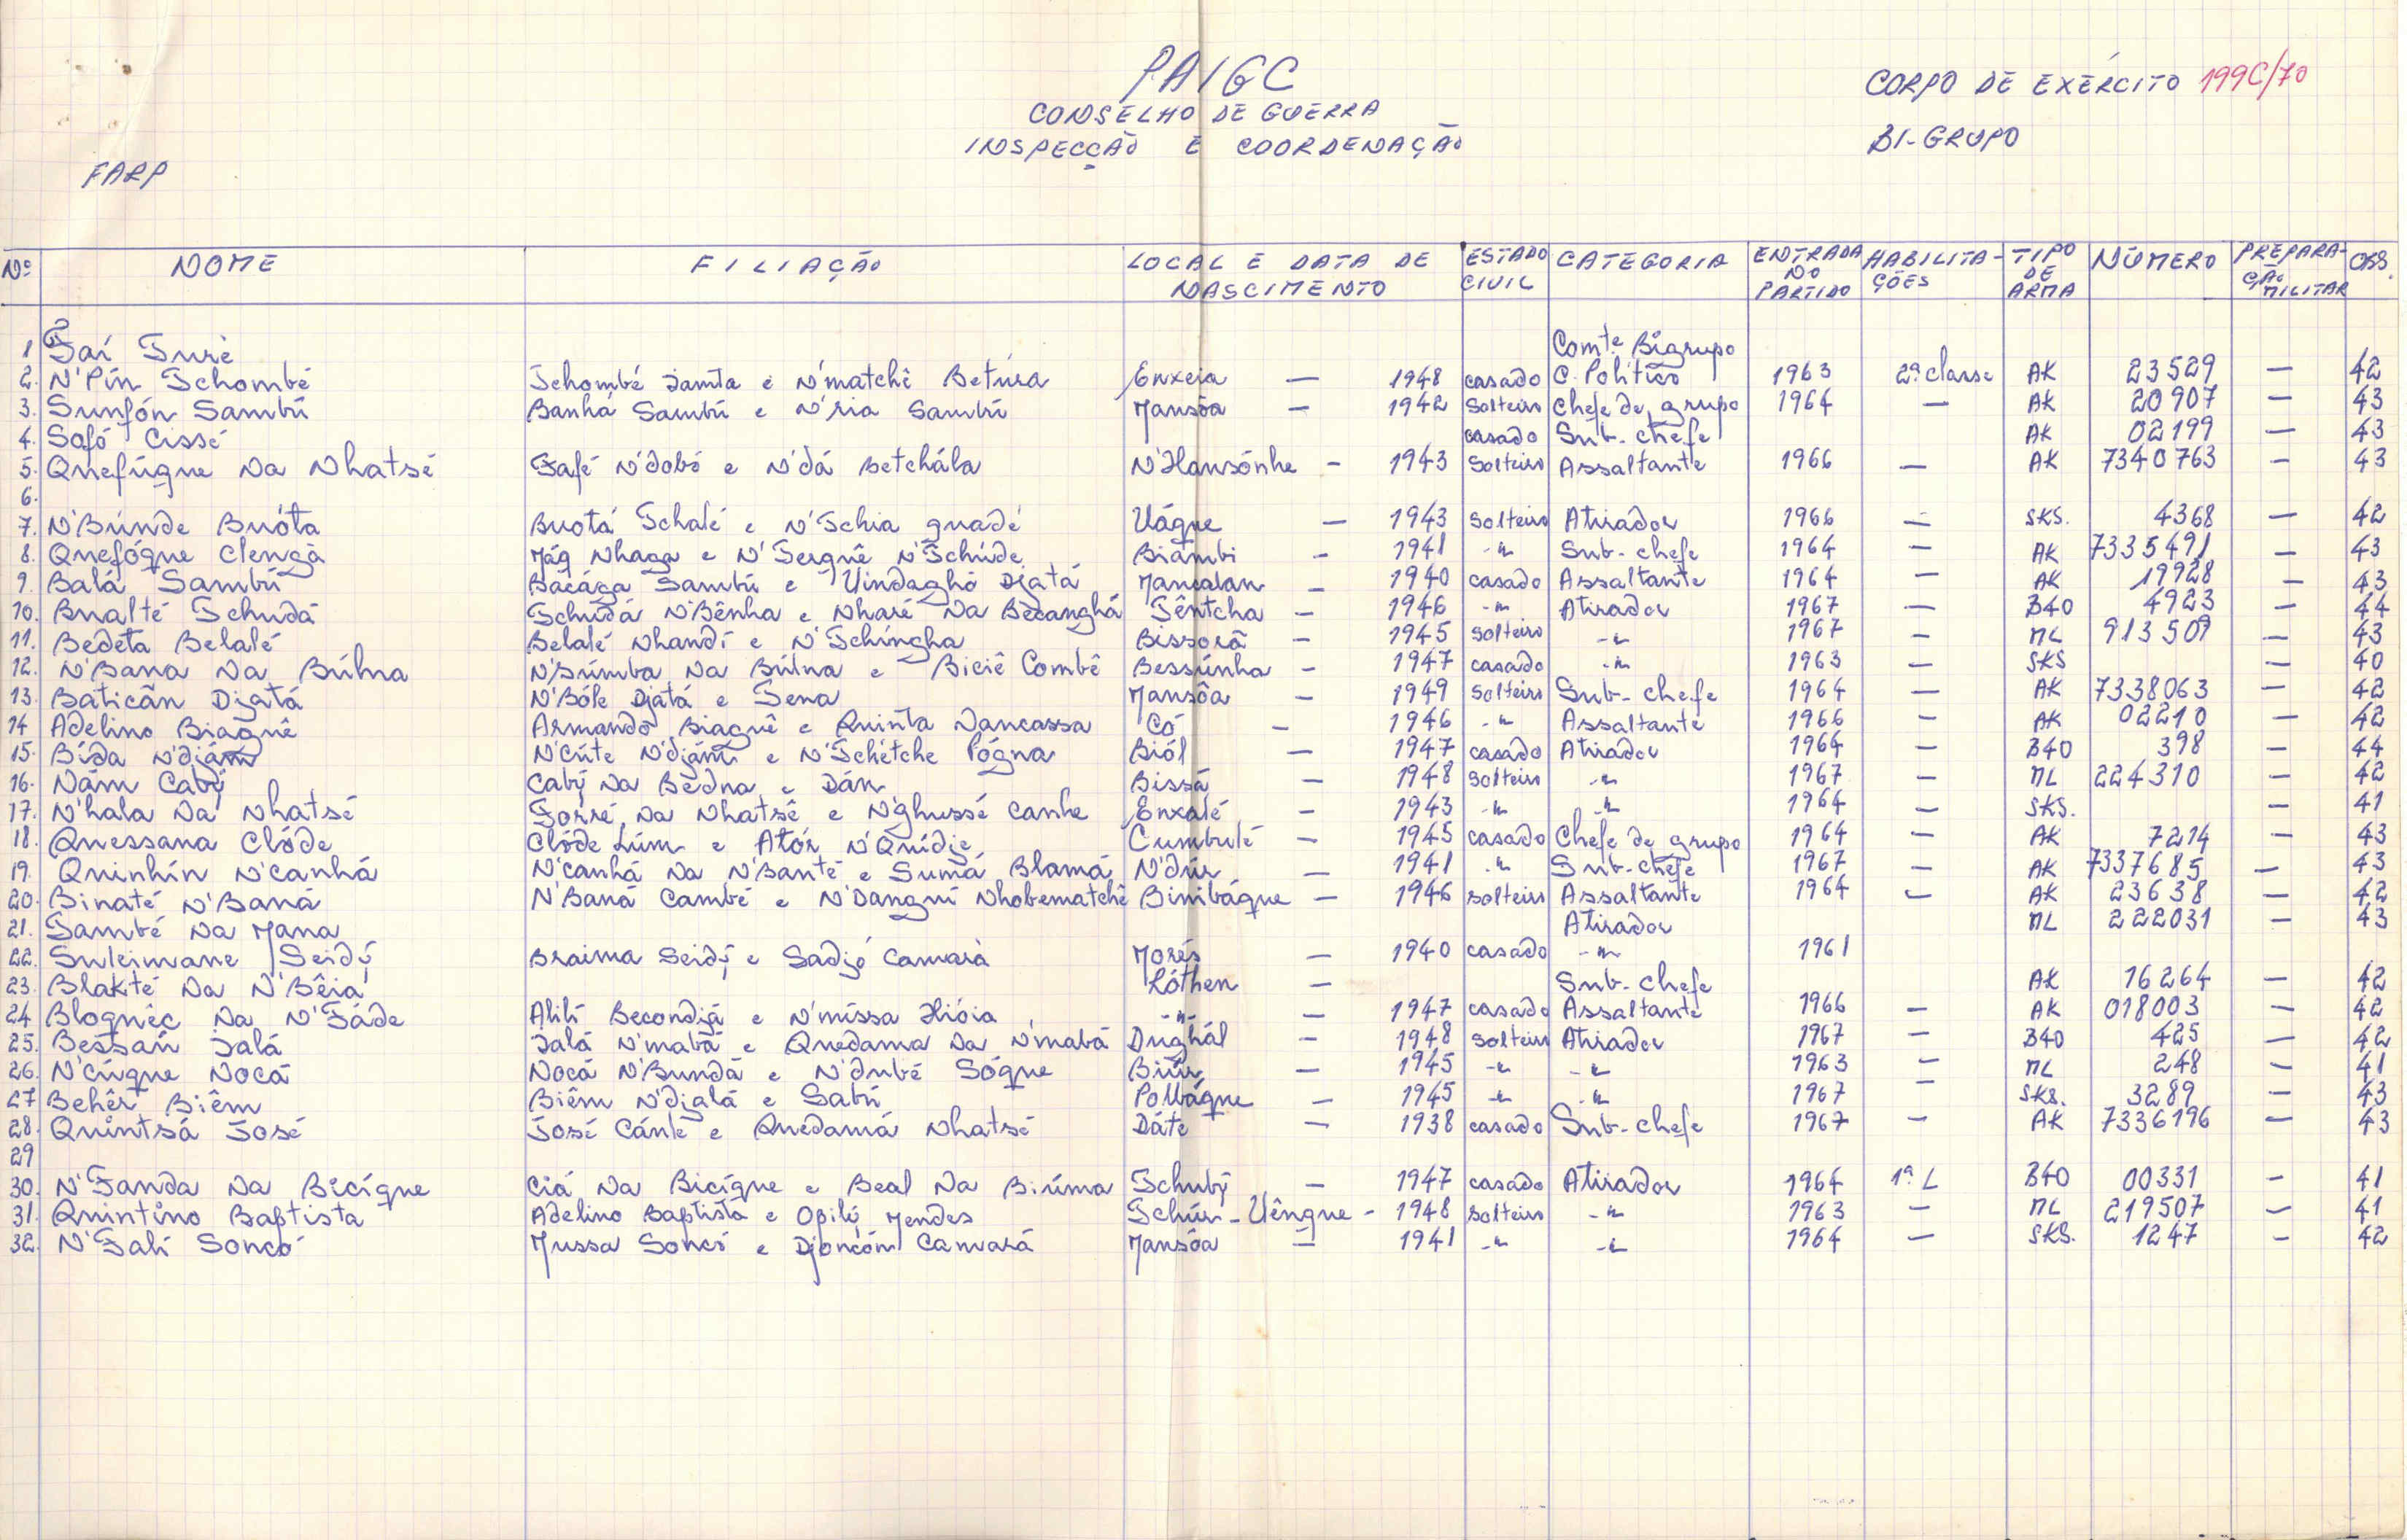 PAIGC
CONSELHO DE GUERRA
INSPECÇÃO E COORDENAÇÃO
CORPO DE EXÉRCITO 199C/70
BI-GRUPO
FARP
Nº NOME FILIAÇÃO LOCAL E DATA DE NASCIMENTO ESTADO CIVIL CATEGORIA ENTRADA NO PARTIDO HABILITAÇÕES TIPO DE ARMA NÚMERO PREPARAÇÃO MILITAR OBS.
1 Taí Turé Comte. Bigrupo
2. N'Pín Tchombé Tchombé Iamta e N'matchê Betúra Enxeia — 1948 casado C. Político 1963 2ª classe AK 23529 — 42
3. Sunfón Sambú Banhá Sambú e N'ria Sambú Mansôa — 1942 Solteiro Chefe de grupo 1964 — AK 20907 — 43
4. Safó Cissé casado Sub-chefe AK 02199 — 43
5. Quefúgue Na Nhatsé Fafé N'dobó e N'dá Betchála N'Hansónhe — 1943 Solteiro Assaltante 1966 — AK 7340763 — 43
6.
7. N'Búnde Buóta Buotá Tchalé e N'Tchia guadé Uáque — 1943 Solteiro Atirador 1966 — SKS. 4368 — 42
8. Quefóque Clengá Máq Nhaga e N'Terguê N'Tchúde Biambi — 1941 -"- Sub-chefe 1964 — AK 7335491 — 43
9. Balá Sambú Bacága Sambú e Uindaghó Djatá Mancalan — 1940 casado Assaltante 1964 — AK 19928 — 43
10. Bualté Tchudá Tchudá N'Bênha e Nharé Na Becanghá Têntcha — 1946 -"- Atirador 1967 — B40 4923 — 44
11. Bedeta Belalé Belalé Nhandí e N'Tchingha Bissorã — 1945 Solteiro -"- 1967 — ML 913509 — 43
12. N'Bana Na Búlna N'Búmba Na Búlna e Biciê Combê Bessúnha — 1947 casado -"- 1963 — SKS — 40
13. Baticãn Djatá N'Bóle Djatá e Tena Mansôa — 1949 Solteiro Sub-chefe 1964 — AK 7338063 — 42
14 Adelino Biaguê Armando Biaguê e Quinta Nancassa Có — 1946 -"- Assaltante 1966 — AK 02210 — 42
15. Bída N'djám N'Cúte N'djám e N'Tchétche Pógna Biól — 1947 casado Atirador 1964 — B40 398 — 44
16. Nám Cabý Cabý Na Bedna e Dán Bissá — 1948 Solteiro -"- 1967 — ML 224310 — 42
17. N'hala Na Nhatsé Forré Na Nhatsê e N'ghussé canhe Enxalé — 1943 -"- -"- 1964 — SKS. — 41
18. Quessana Clóde Clóde Lúm e Atór N'Quídje Cumbulé — 1945 casado Chefe de grupo 1964 — AK 7214 — 43
19. Quinhín N'canhá N'canhá Na N'Santé e Sumá Blamá N'dúr — 1941 -"- Sub-chefe 1967 — AK 7337685 — 43
20. Binaté N'Baná N'Baná Cambé e N'Dangní Nhobematchê Binibáque — 1946 solteiro Assaltante 1964 — AK 23638 — 42
21. També Na Mana Atirador ML 222031 — 43
22. Suleimane Seidý Braima Seidý e Sadjó Camará Morés — 1940 casado -"- 1961
23. Blakté Na N'Bêia Lóthen — Sub-chefe AK 16264 — 42
24 Bloquêc Na N'Fáde Alilí Becondjá e N'míssa Hióia -"- — 1947 casado Assaltante 1966 — AK 018003 — 42
25. Bessán Ialá Ialá N'mabá e Quedama Na N'mabá Dughál — 1948 Solteiro Atirador 1967 — B40 425 — 42
26. N'Cúque Nocá Nocá N'Bundá e N'dubé Sóque Biúr — 1945 -"- -"- 1963 — ML 248 — 41
27 Behêr Biêm Biêm N'djalá e Sabú Polbáque — 1945 -"- -"- 1967 — SKS. 3289 — 43
28. Quintsá José José Cánte e Quedamá Nhatsé Dáte — 1938 casado Sub-chefe 1967 — AK 7336196 — 43
29
30. N'Fanda Na Bicíque Ciá Na Bicíque e Beal Na Birúma Tchubý — 1947 casado Atirador 1964 1ª L B40 00331 — 41
31. Quintino Baptista Adelino Baptista e Opiló Mendes Tchúr-Uêngue - 1948 solteiro -"- 1963 — ML 219507 — 41
32. N'Falí Soncó Mussa Soncó e Djoncón Camará Mansôa — 1941 -"- -"- 1964 — SKS. 1247 — 42